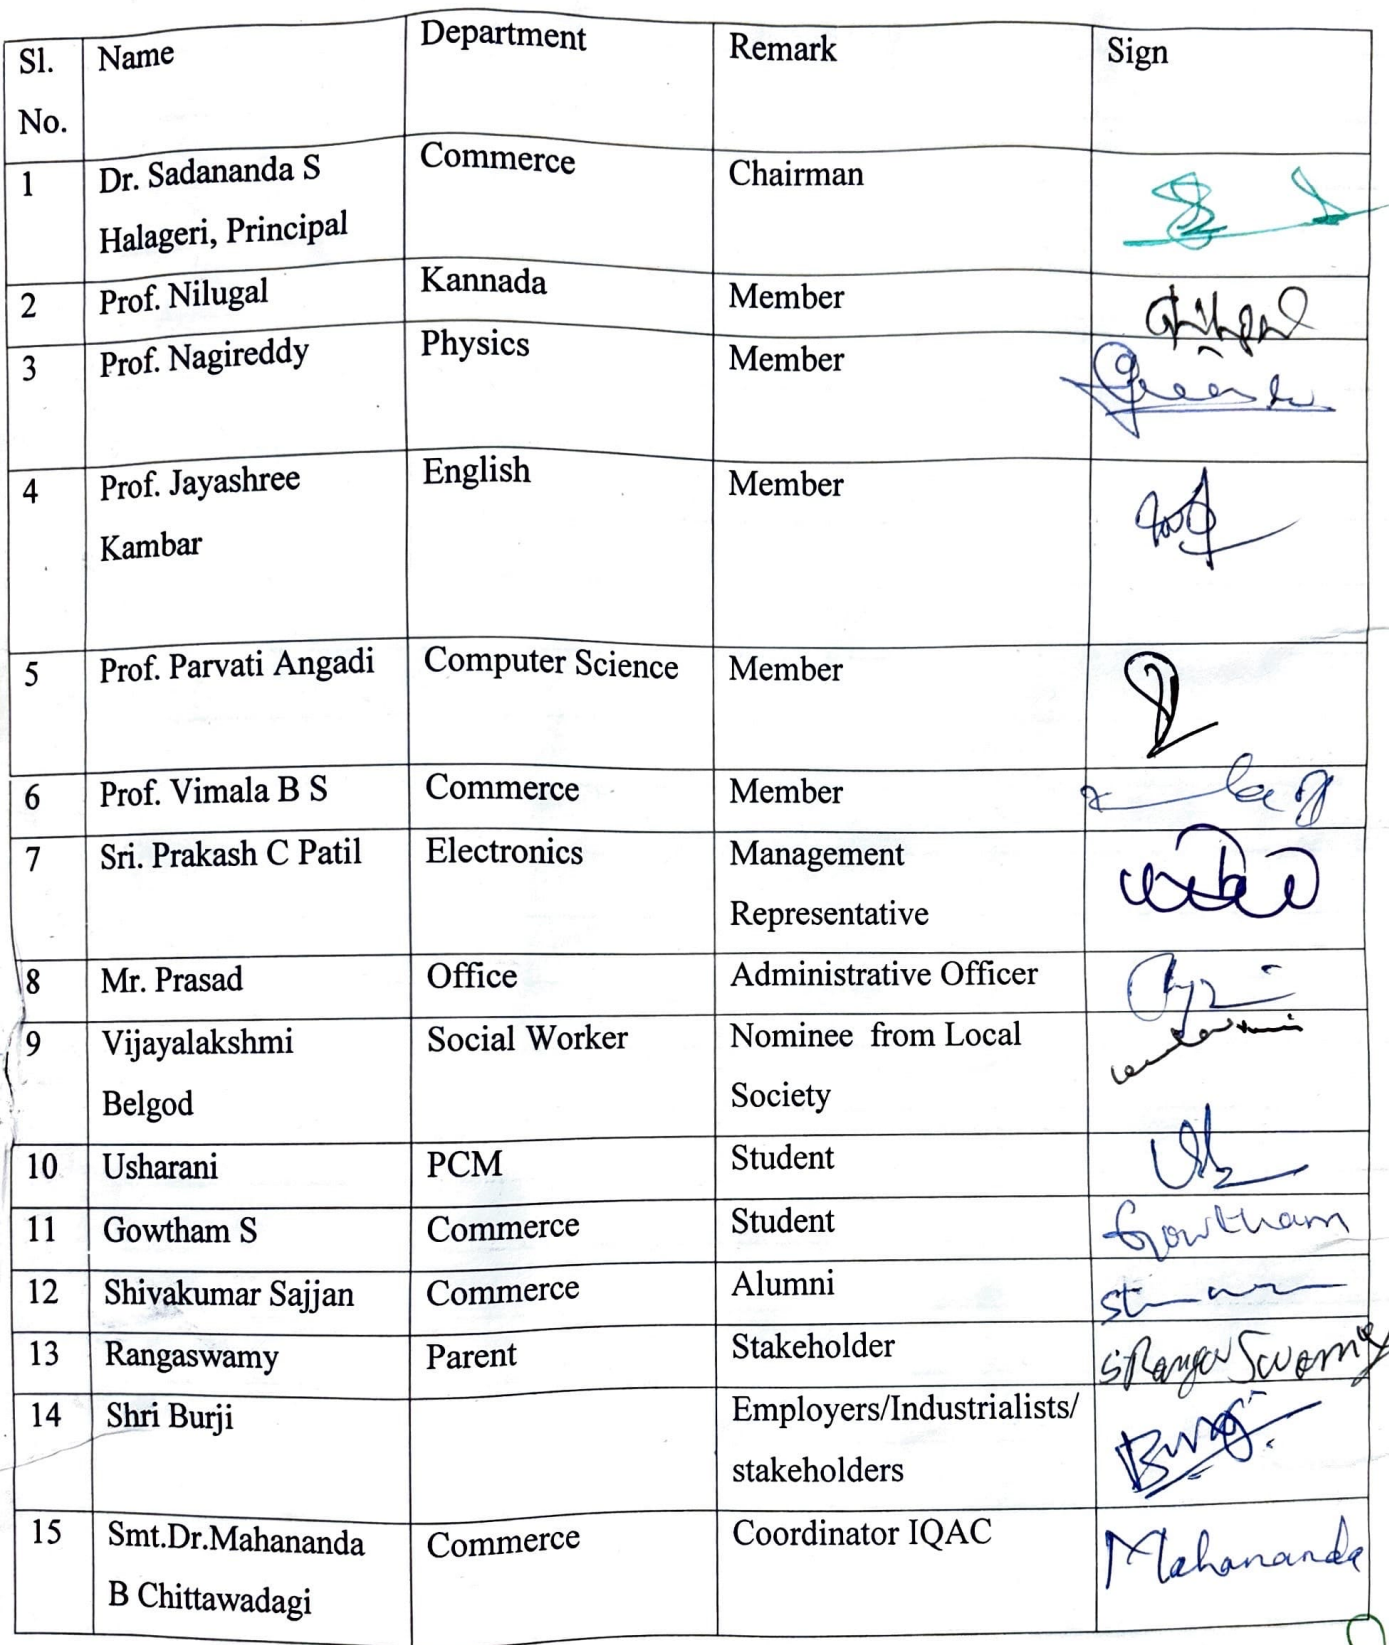 Sl. No. Name Department Remark Sign
1 Dr. Sadananda S Commerce Chairman
Halageri, Principal
2 Prof. Nilugal Kannada Member
3 Prof. Nagireddy Physics Member
4 Prof. Jayashree English Member
Kambar
5 Prof. Parvati Angadi Computer Science Member
6 Prof. Vimala B S Commerce Member
7 Sri. Prakash C Patil Electronics Management
Representative
8 Mr. Prasad Office Administrative Officer
9 Vijayalakshmi Social Worker Nominee from Local
Belgod Society
10 Usharani PCM Student
11 Gowtham S Commerce Student Gowtham
12 Shivakumar Sajjan Commerce Alumni
13 Rangaswamy Parent Stakeholder S Ranga Swamy
14 Shri Burji Employers/Industrialists/ Burji
stakeholders
15 Smt.Dr.Mahananda Commerce Coordinator IQAC Mahananda
B Chittawadagi